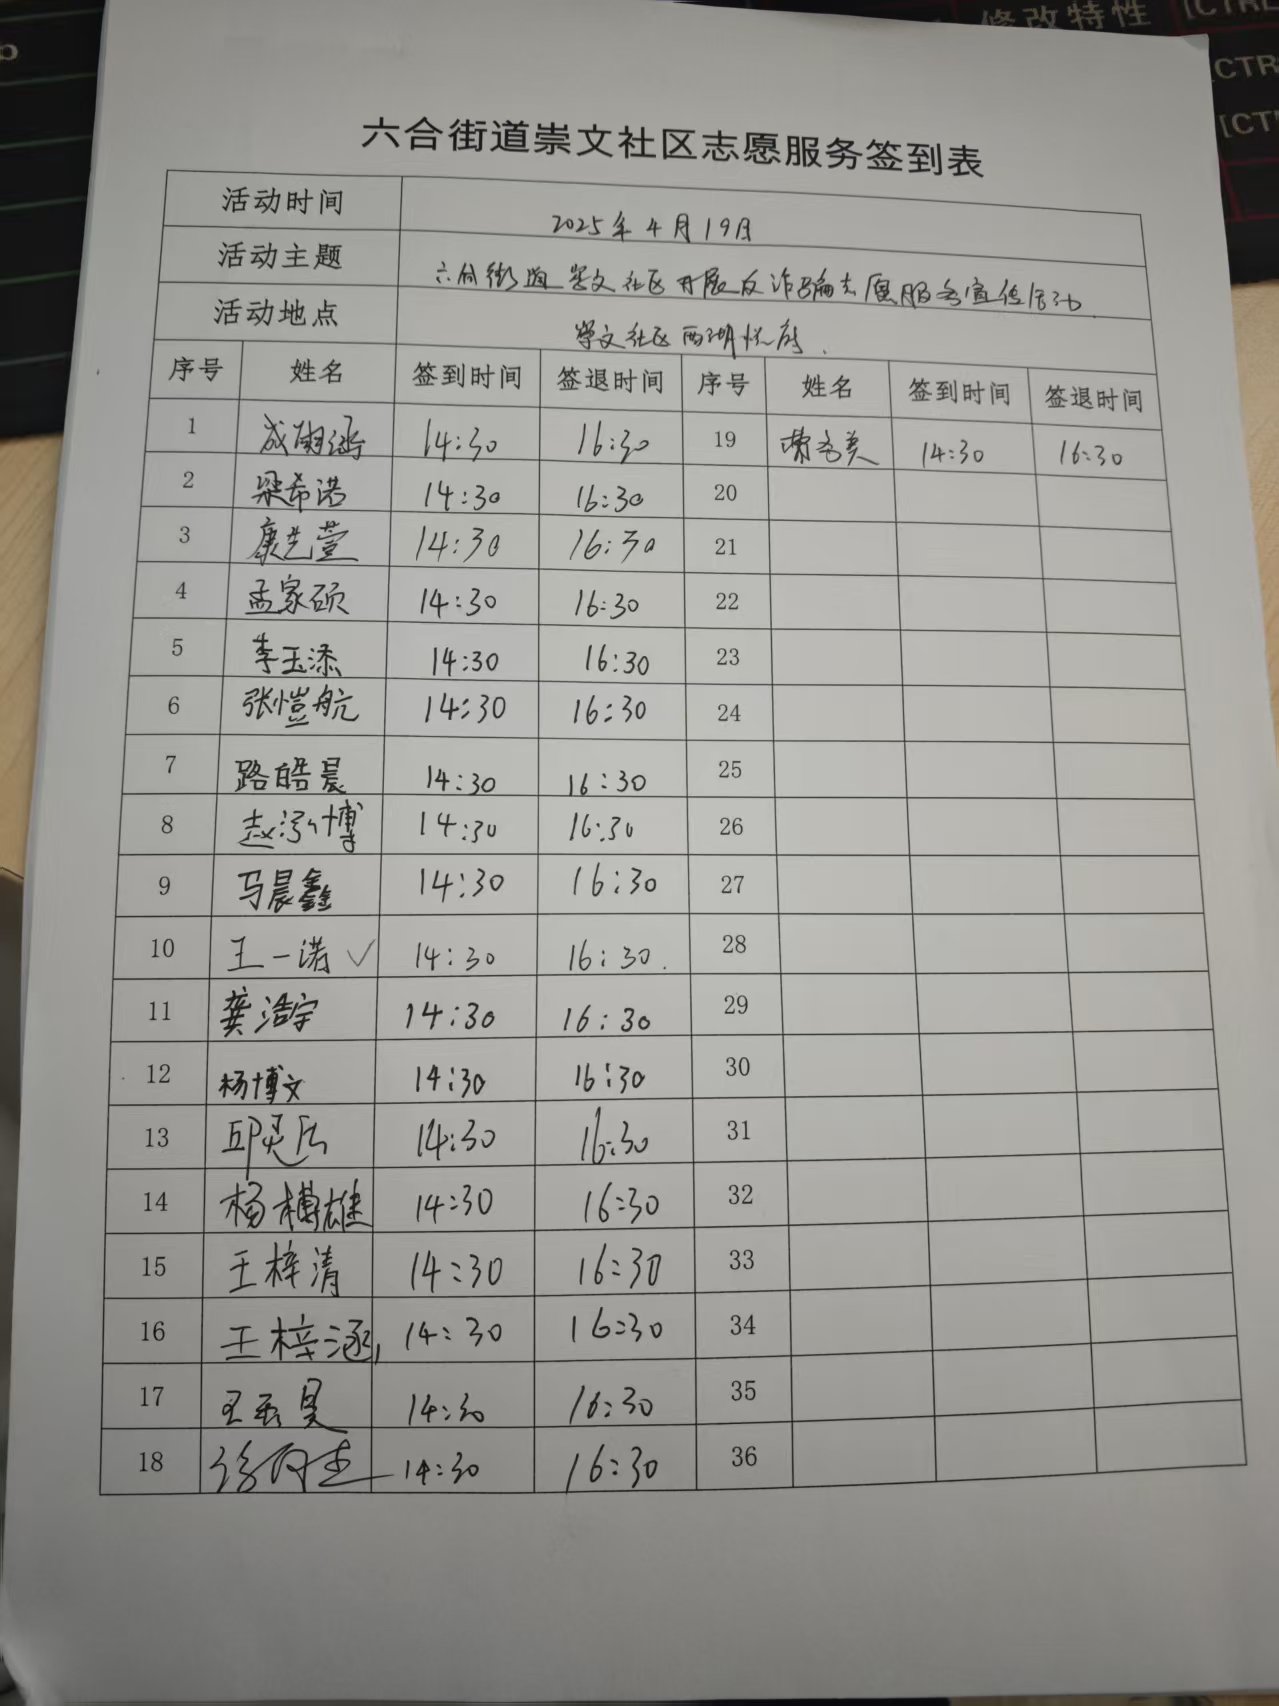 修改特性 [CTRL
[CTR
[CT
六合街道崇文社区志愿服务签到表
活动时间 2025年4月19日
活动主题 六合街道崇文社区开展反诈骗志愿服务宣传活动.
活动地点 崇文社区西湖悦府.
序号 姓名 签到时间 签退时间 序号 姓名 签到时间 签退时间
1 14:30 16:30 19 14:30 16:30
2 梁希诺 14:30 16:30 20
3 康艺萱 14:30 16:30 21
4 孟家硕 14:30 16:30 22
5 李玉添 14:30 16:30 23
6 张恺航 14:30 16:30 24
7 路皓晨 14:30 16:30 25
8 赵泓博 14:30 16:30 26
9 马晨鑫 14:30 16:30 27
10 王一诺 ✓ 14:30 16:30. 28
11 龚浩宇 14:30 16:30 29
12 杨博文 14:30 16:30 30
13 14:30 16:30 31
14 杨博雄 14:30 16:30 32
15 王梓清 14:30 16:30 33
16 王梓涵 14:30 16:30 34
17 14:30 16:30 35
18 14:30 16:30 36